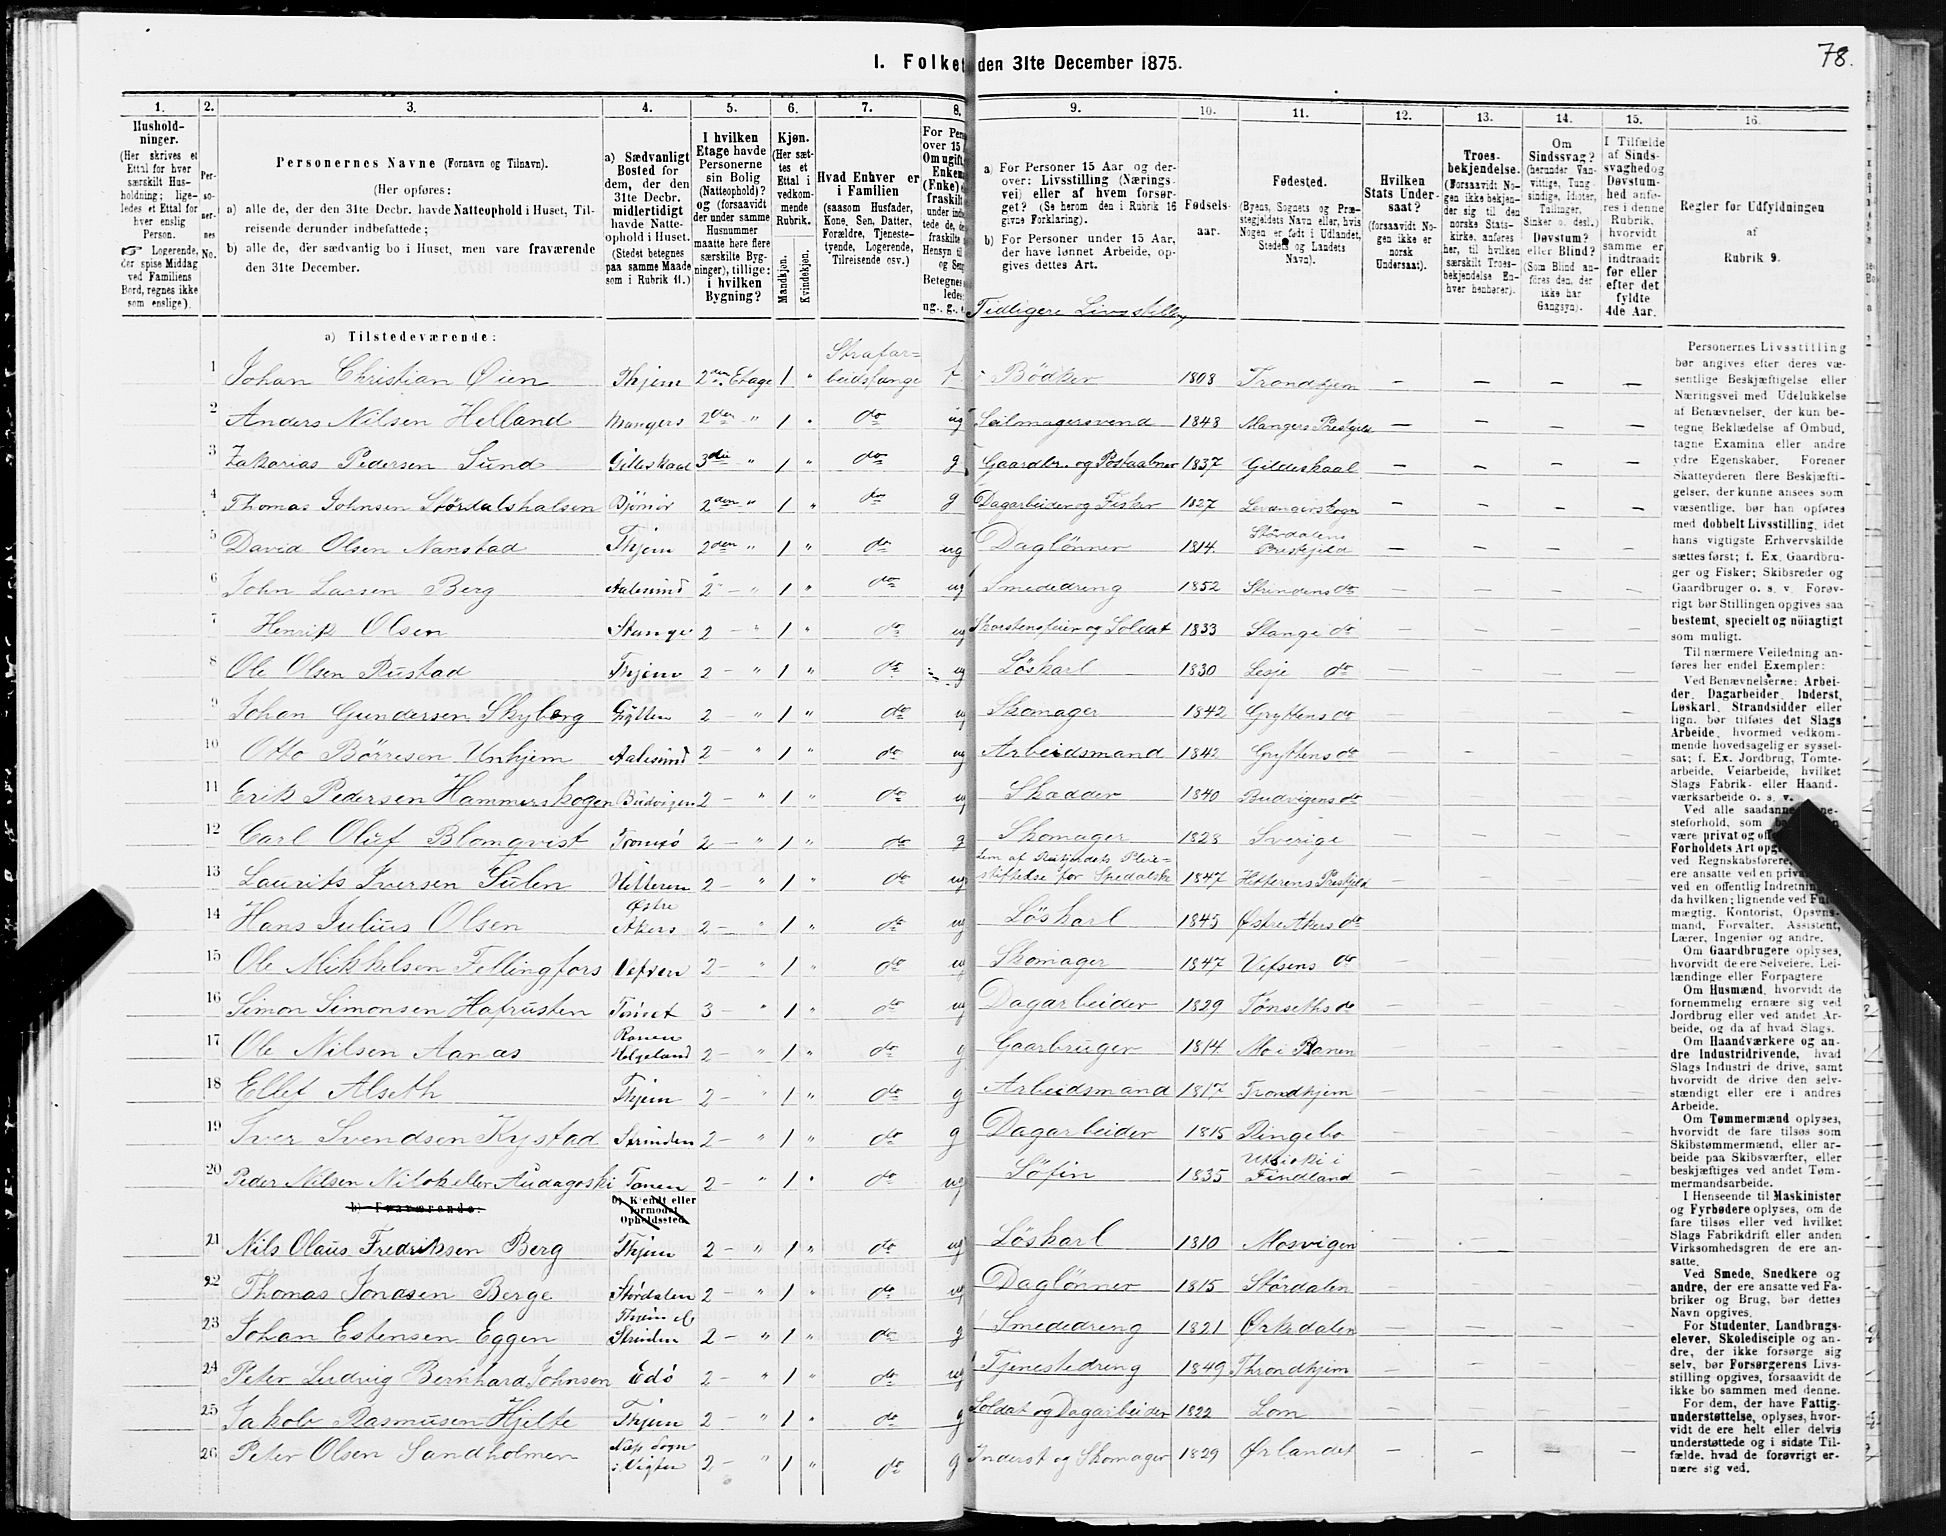 78.
I. Folket den 31te December 1875.
1. 2. 3. 4. 5. 6. 7. 8. 9. 10. 11. 12. 13. 14. 15. 16.
Husholdninger.
(Her skrives et Ettal for hver særskilt Husholdning; ligeledes et Ettal for hver enslig Person.
☞ Logerende, der spise Middag ved Familiens Bord, regnes ikke som enslige).
Personernes No.
Personernes Navne (Fornavn og Tilnavn).
(Her opføres:
a) alle de, der den 31te Decbr. havde Natteophold i Huset, Tilreisende derunder indbefattede;
b) alle de, der sædvanlig bo i Huset, men vare fraværende den 31te December.
a) Sædvanligt Bosted for dem, der den 31te Decbr. midlertidigt havde Natteophold i Huset. (Stedet betegnes paa samme Maade som i Rubrik 11.)
I hvilken Etage havde Personerne sin Bolig (Natteophold)? og (forsaavidt der under samme Husnummer maatte høre flere særskilte Bygninger), tillige: i hvilken Bygning?
Kjøn. (Her sættes et Ettal i vedkommende Rubrik.
Mandkjøn. Kvindekjøn.
Hvad Enhver er i Familien
(saasom Husfader, Kone, Søn, Datter, Forældre, Tjenestetyende, Logerende, Tilreisende osv.)
a) For Personer 15 Aar og derover: Livsstilling (Næringsvei) eller af hvem forsørget? (Se herom den i Rubrik 16 givne Forklaring).
b) For Personer under 15 Aar, der have lønnet Arbeide, opgives dettes Art.
Tidligere Livsstilling
Fødselsaar.
Fødested.
(Byens, Sognets og Præstegjeldets Navn eller, hvis Nogen er født i Udlandet, Stedets og Landets Navn).
Hvilken Stats Undersaat?
(forsaavidt Nogen ikke er norsk Undersaat).
Troesbekjendelse.
(Forsaavidt Nogen ikke bekjender sig til den norske Statskirke, anføres her, til hvilken særskilt Troesbekjendelse Enhver henhører).
Om Sindssvag? (herunder Vanvittige, Tungsindige, Idioter, Tullinger, Sinker o. desl.) Døvstum? eller Blind? (Som Blind anføres den, der ikke har Gangsyn).
I Tilfælde af Sindssvaghed og Døvstumhed anføres i denne Rubrik, hvorvidt samme er indtraadt før eller efter det fyldte 4de Aar.
Regler for Udfyldningen af Rubrik 9.
a) Tilstedeværende:
1 Johan Christian Øien Thjem 2den Etage 1 " Strafarbeidsfange f Bødker 1808 Trondhjem — — — —
2 Anders Nilsen Helland Mangers 2den " 1 " do ug Seilmagersvend 1848 Mangers Prestgjeld — — — —
3 Zakarias Pedersen Sund Gilleskaal 3die " 1 " do g Gaardbr. og Postaabner 1837 Gildeskaal — — — —
4 Thomas Johnsen Stördalshalsen Björnör 2den " 1 " do g Dagarbeider og Fisker 1827 — — — —
5 David Olsen Nanstad Thjem 2den " 1 " do ug Daglönner 1814 Stördalens Prestgjeld — — — —
6 John Larsen Berg Aalesund 2 — " 1 " do ug Smededreng 1852 Strindens do — — — —
7 Henrik Olsen Stange 2 — " 1 " do ug Skorstensfeier og Soldat 1833 Stange do — — — —
8 Ole Olsen Rustad Thjem 2 — " 1 " do ug Löskarl 1830 Lesje do — — — —
9 Johan Gundersen Skyberg Grytten 2 — " 1 " do ug Skomager 1842 Gryttens do — — — —
10 Otto Börresen Unhjem Aalesund 2 — " 1 " do ug Arbeidsmand 1842 Gryttens do — — — —
11 Erik Pedersen Hammerskogen Budvigen 2 — " 1 " do ug Skadder 1840 Budvigens do — — — —
12 Carl Oluf Blomqvist Tromsø 2 — " 1 " do g Skomager 1828 Sverige — — — —
13 Laurits Iversen Sulen Hitteren 2 — " 1 " do ug Lem af Reitgjerdets Pleiestiftelse for Spedalske 1847 Hitterens Prestgjeld — — — —
14 Hans Julius Olsen Østre Akers 2 — " 1 " do ug Löskarl 1845 Østre Akers do — — — —
15 Ole Mikkelsen Fellingfors Vefsen 2 — " 1 " do ug Skomager 1847 Vefsens do — — — —
16 Simon Simonsen Hafrusten Tönset 3 " 1 " do ug Dagarbeider 1829 Tönseths do — — — —
17 Ole Nilsen Aanæs Ranen Helgeland 2 — " 1 " do g Gaarbruger 1814 Mo i Ranen — — — —
18 Ellef Alseth Thjem 2 — " 1 " do g Arbeidsmand 1817 Trondhjem — — — —
19 Iver Svendsen Kystad Strinden 2 — " 1 " do g Dagarbeider 1815 Ringebo — — — —
20 Peder Nilsen Nilok eller Audagoski Tanen 2 — 1 " do ug Löfin 1835 Utsioki i Findland — — — —
b) Fraværende: b) Kjendt eller formodet Opholdssted.
21 Nils Olaus Fredriksen Berg Thjem 2 — " 1 " do ug Löskarl 1810 Mosvigen — — — —
22 Thomas Jonasen Berge Stördalen 2 — " 1 " do ug Daglönner 1815 Stördalen — — — —
23 Johan Estensen Eggen Thjem el Strinden 2 — " 1 " do g Smededreng 1821 Ørkedalen — — — —
24 Peter Ludvig Bernhard Johnsen Edø 2 — " 1 " do ug Tjenestedreng 1849 Throndhjem — — — —
25 Jakob Rasmusen Hjelte Thjem 2 — " 1 " do g Soldat og Dagarbeider 1822 Lom — — — —
26 Peter Olsen Sandholmen Næs Sogn i Vigten 2 — " 1 " do g Inderst og Skomager 1829 Ørlandet — — — —
Personernes Livsstilling
bør angives efter deres væ-
sentlige Beskjæftigelse eller
Næringsvei med Udelukkelse
af Benævnelser, der kun be-
tegne Beklædelse af Ombud,
tagne Examina eller andre
ydre Egenskaber. Forener
Skatteyderen flere Beskjæfti-
gelser, der kunne ansees som
væsentlige, bør han opføres
med dobbelt Livsstilling, idet
hans vigtigste Erhvervskilde
sættes først; f. Ex. Gaardbru-
ger og Fisker; Skibsreder og
Gaardbruger o. s. v. Forøv-
rigt bør Stillingen opgives saa
bestemt, specielt og nöiagtigt
som muligt.
Til nærmere Veiledning an-
føres her endel Exempler:
Ved Benævnelserne: Arbei-
der, Dagarbeider, Inderst,
Løskarl, Strandsidder eller
lign. bør tilføies det Slags
Arbeide, hvormed vedkom-
mende hovedsagelig er syssel-
sat; f. Ex. Jordbrug, Tomte-
arbeide, Veiarbeide, hvilket
Slags Fabrik- eller Haand-
værksarbeide o. s. v.
Ved alle saadanne
steforhold, som
være privat og
Forholdets Art
ved Regnskabsførere,
ere ansatte ved en
ved en offentlig Indretning
da hvilken; lignende ved
mægtig, Kontorist, Opsyns-
mand, Forvalter, Assistent,
Lærer, Ingeniør og andre.
Om Gaardbrugere oplyses,
hvorvidt de ere Selveiere, Lei-
lændinge eller Forpagtere
Om Husmænd, hvorvidt de
fornemmelig ernære sig ved
Jordbrug eller ved andet Ar-
beide, og da af hvad Slags.
Om Haandværkere og an-
dre Industridrivende, hvad
Slags Industri de drive, samt
hvorvidt de drive den selv-
stændigt eller ere i andres
Arbeide.
Om Tømmermænd oplyses,
hvorvidt de fare tilsøs som
Skibstømmermænd, eller ar-
beide paa Skibsværfter, eller
beskjæftiges ved andet Tøm-
mermandsarbeide.
I Henseende til Maskinister
og Fyrbødere oplyses, om de
fare tilsøs eller ved hvilket
Slags Fabrikdrift eller anden
Virksomhedsgren de ere an-
satte.
Ved Smede, Snedkere og
andre, der ere ansatte ved Fa-
briker og Brug, bør dettes
Navn opgives.
For Studenter, Landbrugs-
elever, Skoledisciple og an-
dre, der ikke forsørge sig
selv, bør Forsørgerens Livs-
stilling opgives, forsaavidt de
ikke bo sammen med denne.
For dem, der have Fattig-
understøttelse, oplyses, hvor-
vidt de ere helt eller delvis
understøttede og i sidste Til-
fælde, hvad de forøvrigt er-
nære sig ved.